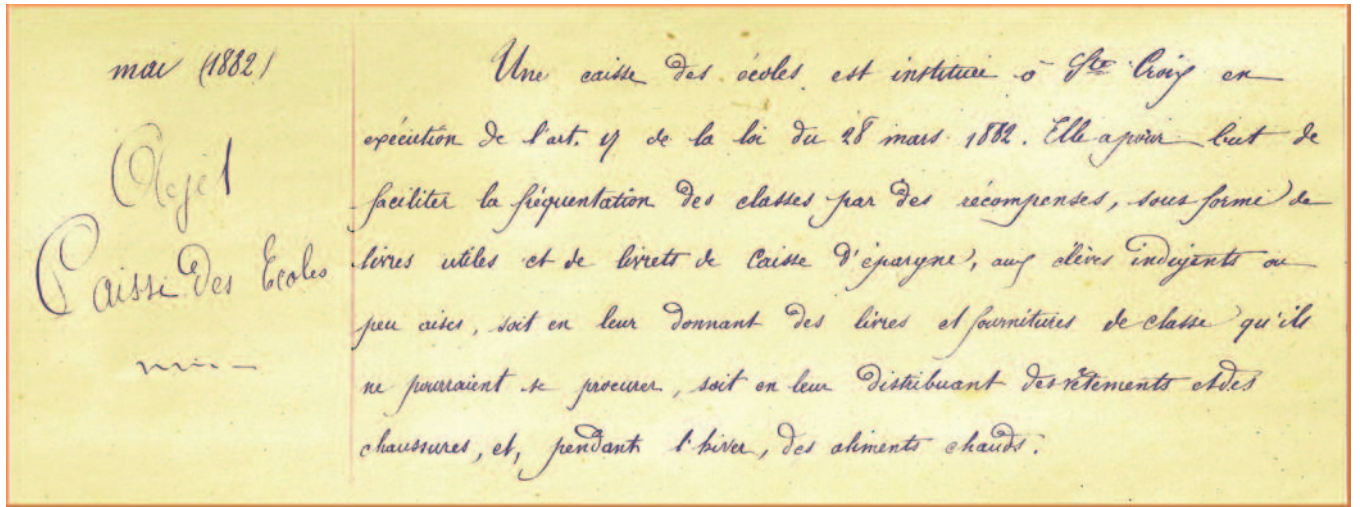 mai (1882)
Objet
Caisse des Ecoles
Une caisse des écoles est instituée à Ste Croix en
exécution de l'art. 17 de la loi du 28 mars 1882. Elle a pour but de
faciliter la fréquentation des classes par des récompenses, sous forme de
livres utiles et de livrets de Caisse d'épargne, aux élèves indigents ou
peu aisés, soit en leur donnant des livres et fournitures de classe qu'ils
ne pourraient se procurer, soit en leur distribuant des vêtements et des
chaussures, et, pendant l'hiver, des aliments chauds.